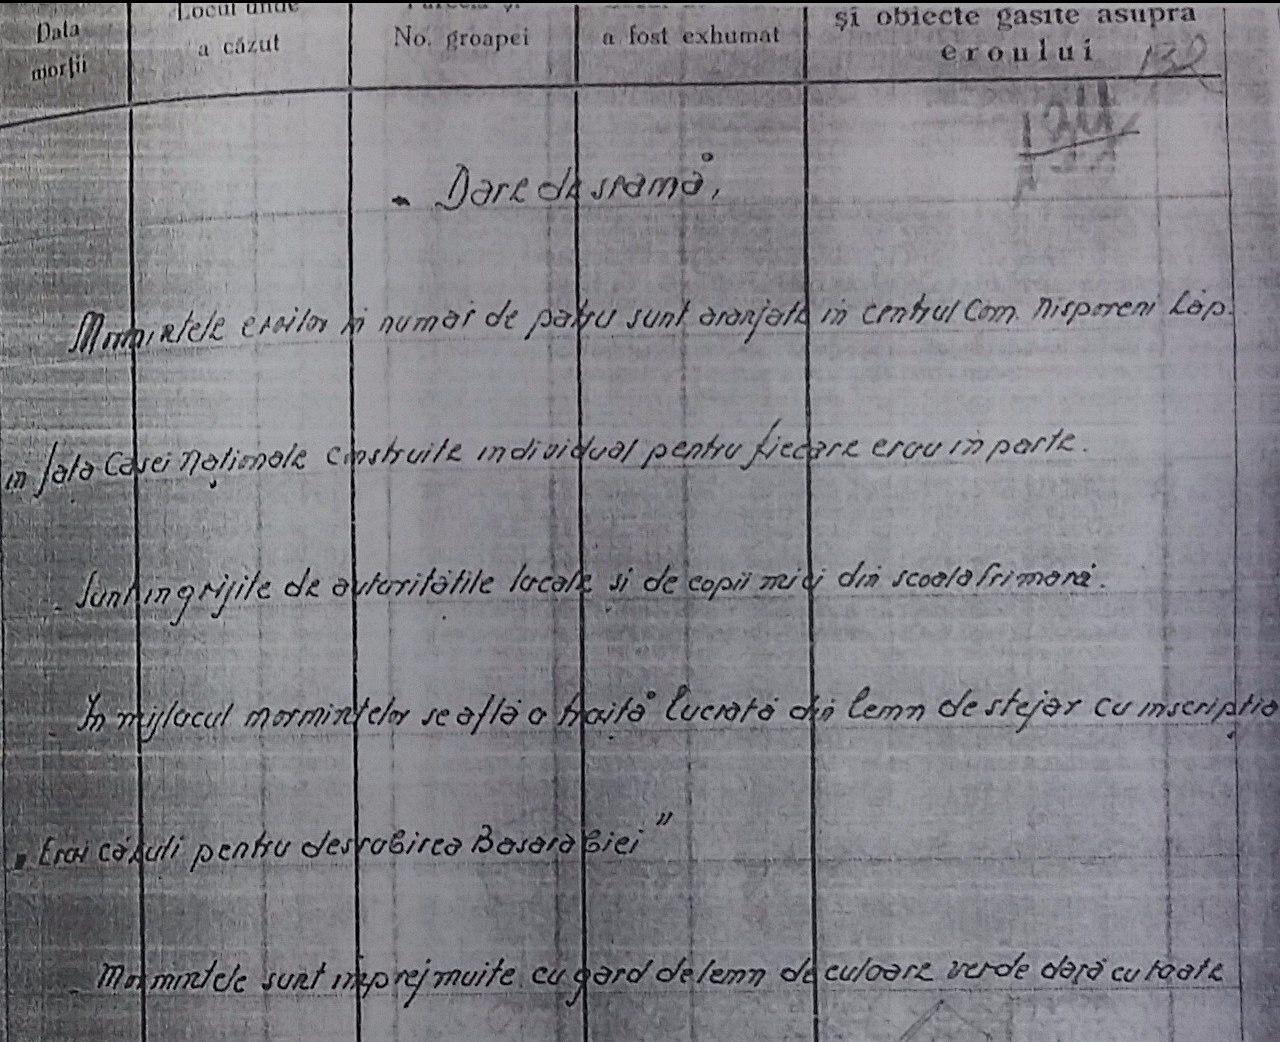 Data morții
Locul unde a căzut
No. groapei
a fost exhumat
și obiecte găsite asupra eroului
Dare de samă,
Mormintele eroilor in numar de patru sunt aranjate in centrul Com. Nisporeni Lăp.
in fața Casei Naționale construite individual pentru fiecare erou in parte.
Sunt ingrijite de autoritățile locale și de copii mici din scoala primară.
În mijlocul mormintelor se află o troiță lucrată din lemn de stejar cu inscripția
„Eroi căzuti pentru desrobirea Basarabiei”
Mormintele sunt imprejmuite cu gard de lemn de culoare verde dată cu toate